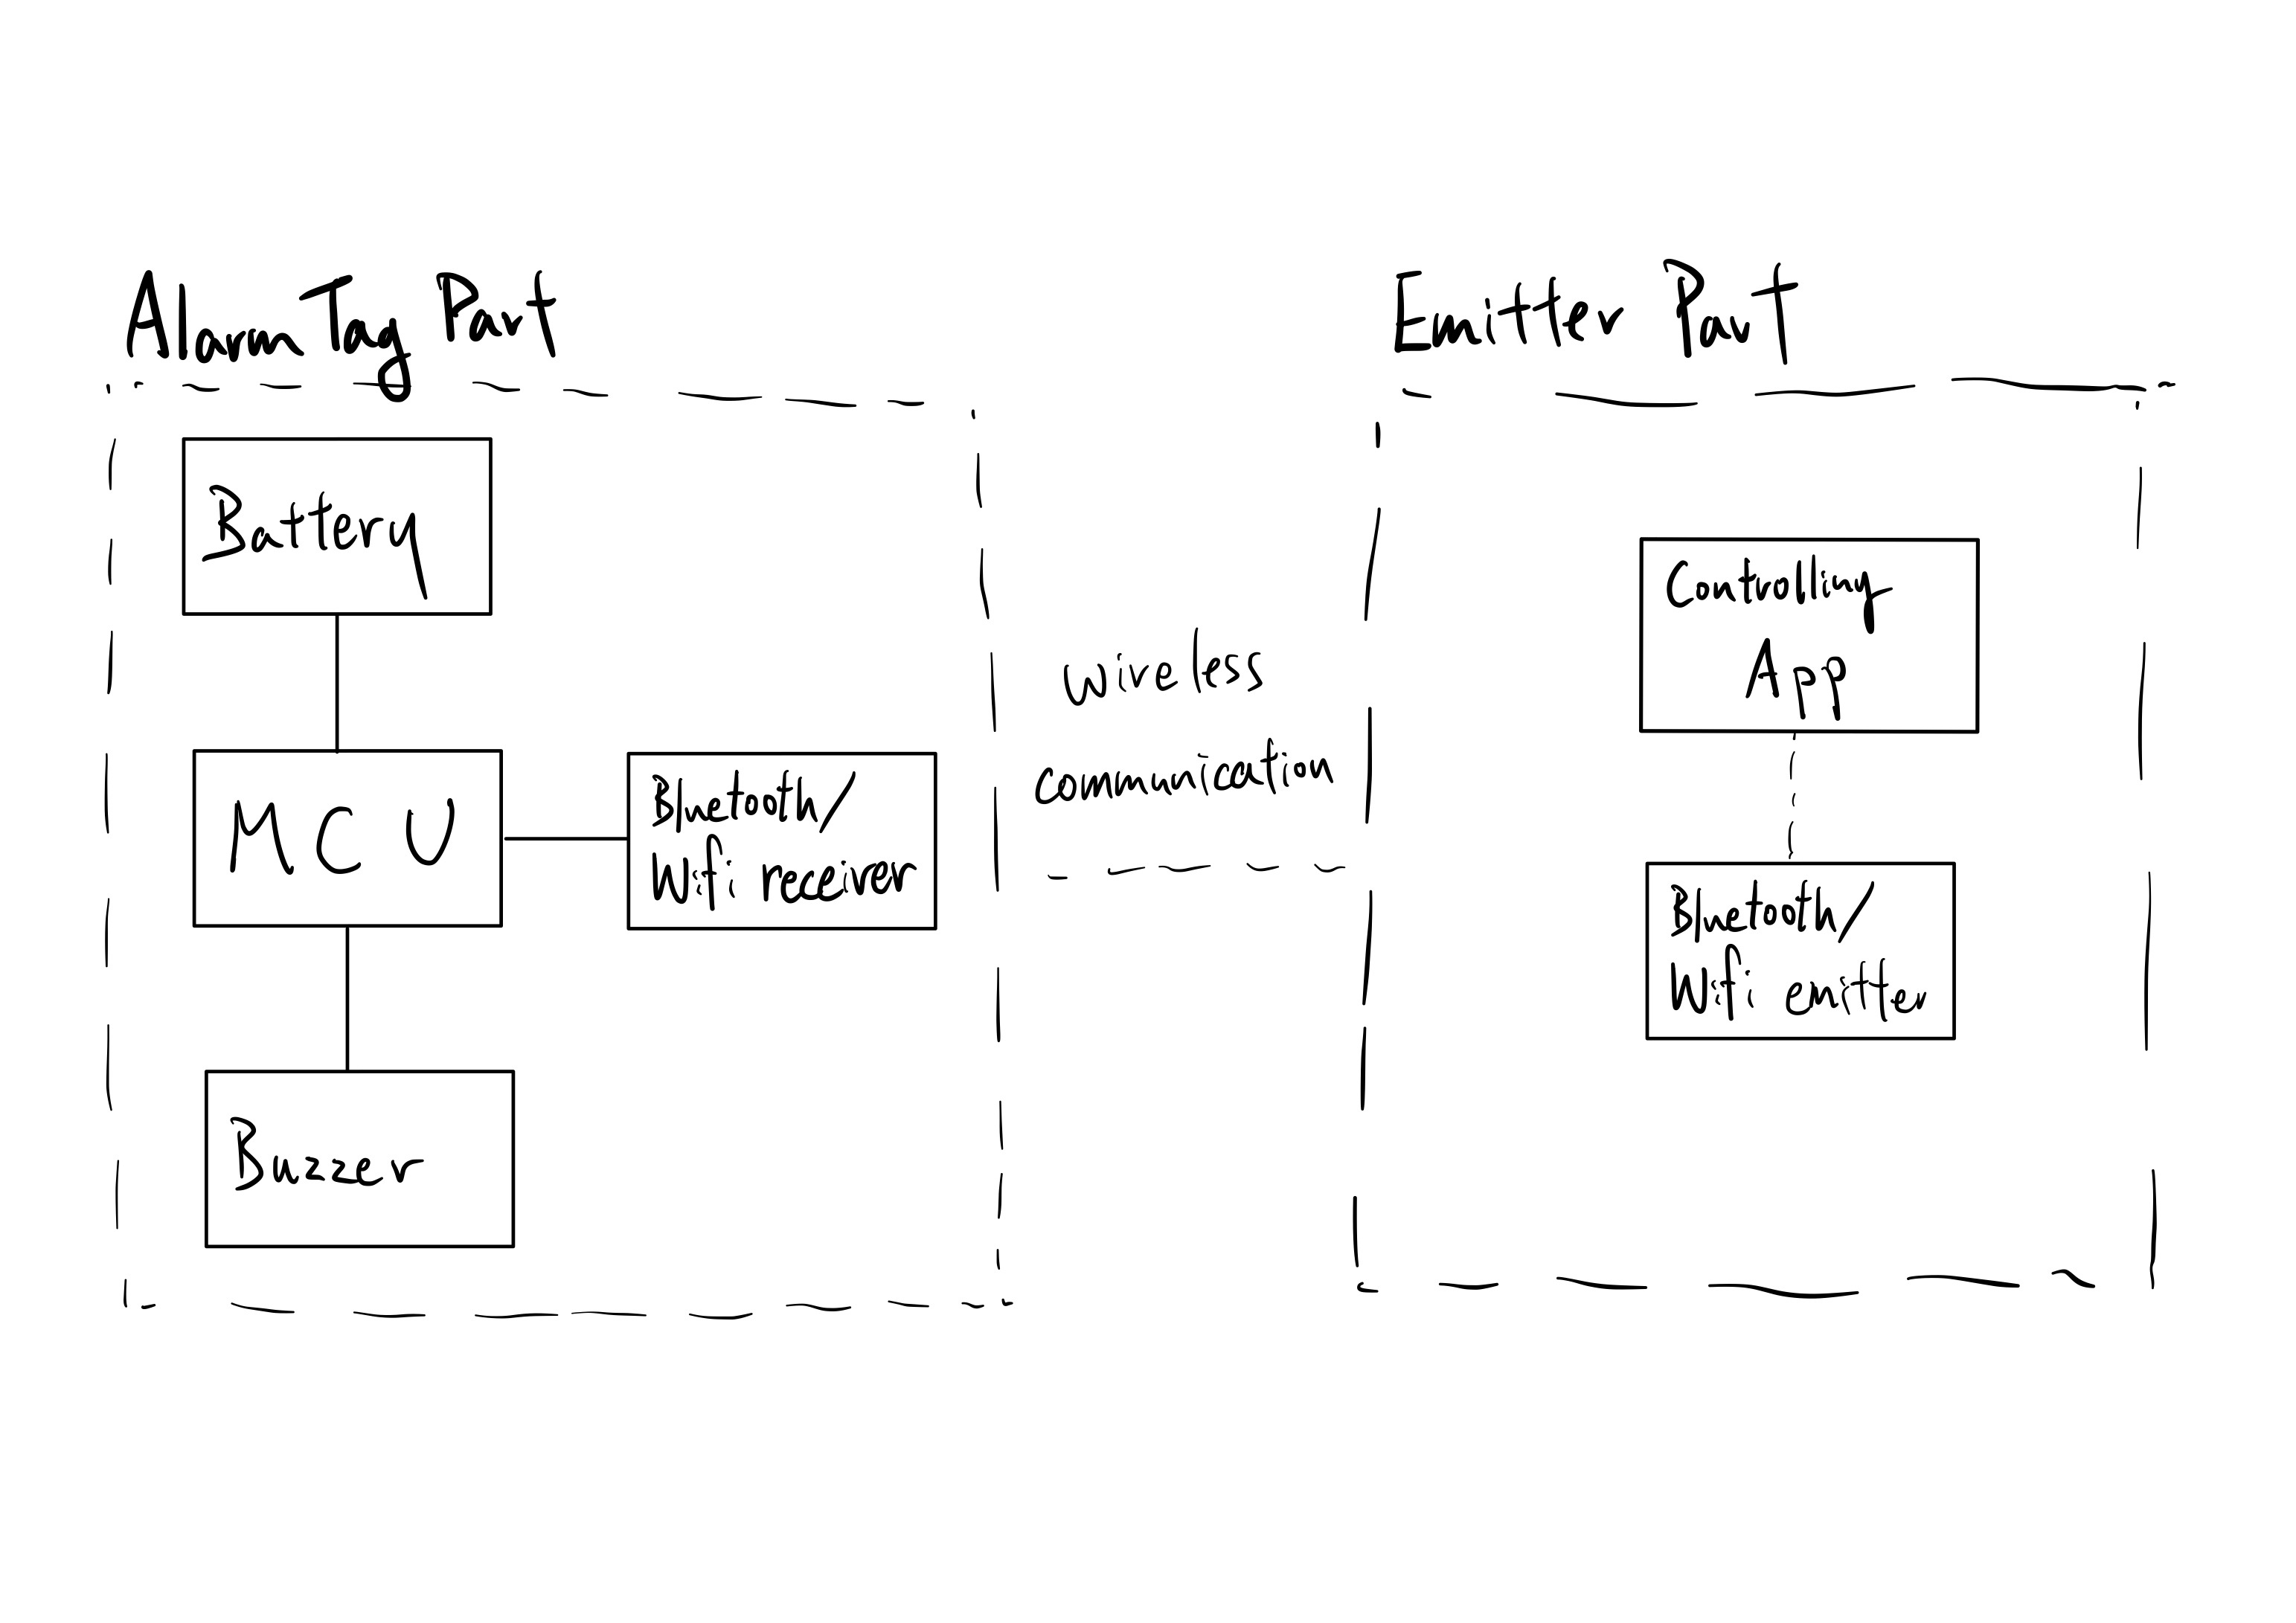 Alarm Tag Part
Battery
MCU
Bluetooth/
Wifi receiver
Buzzer
wireless
communication
Emitter Part
Controlling
App
Bluetooth/
Wifi emitter